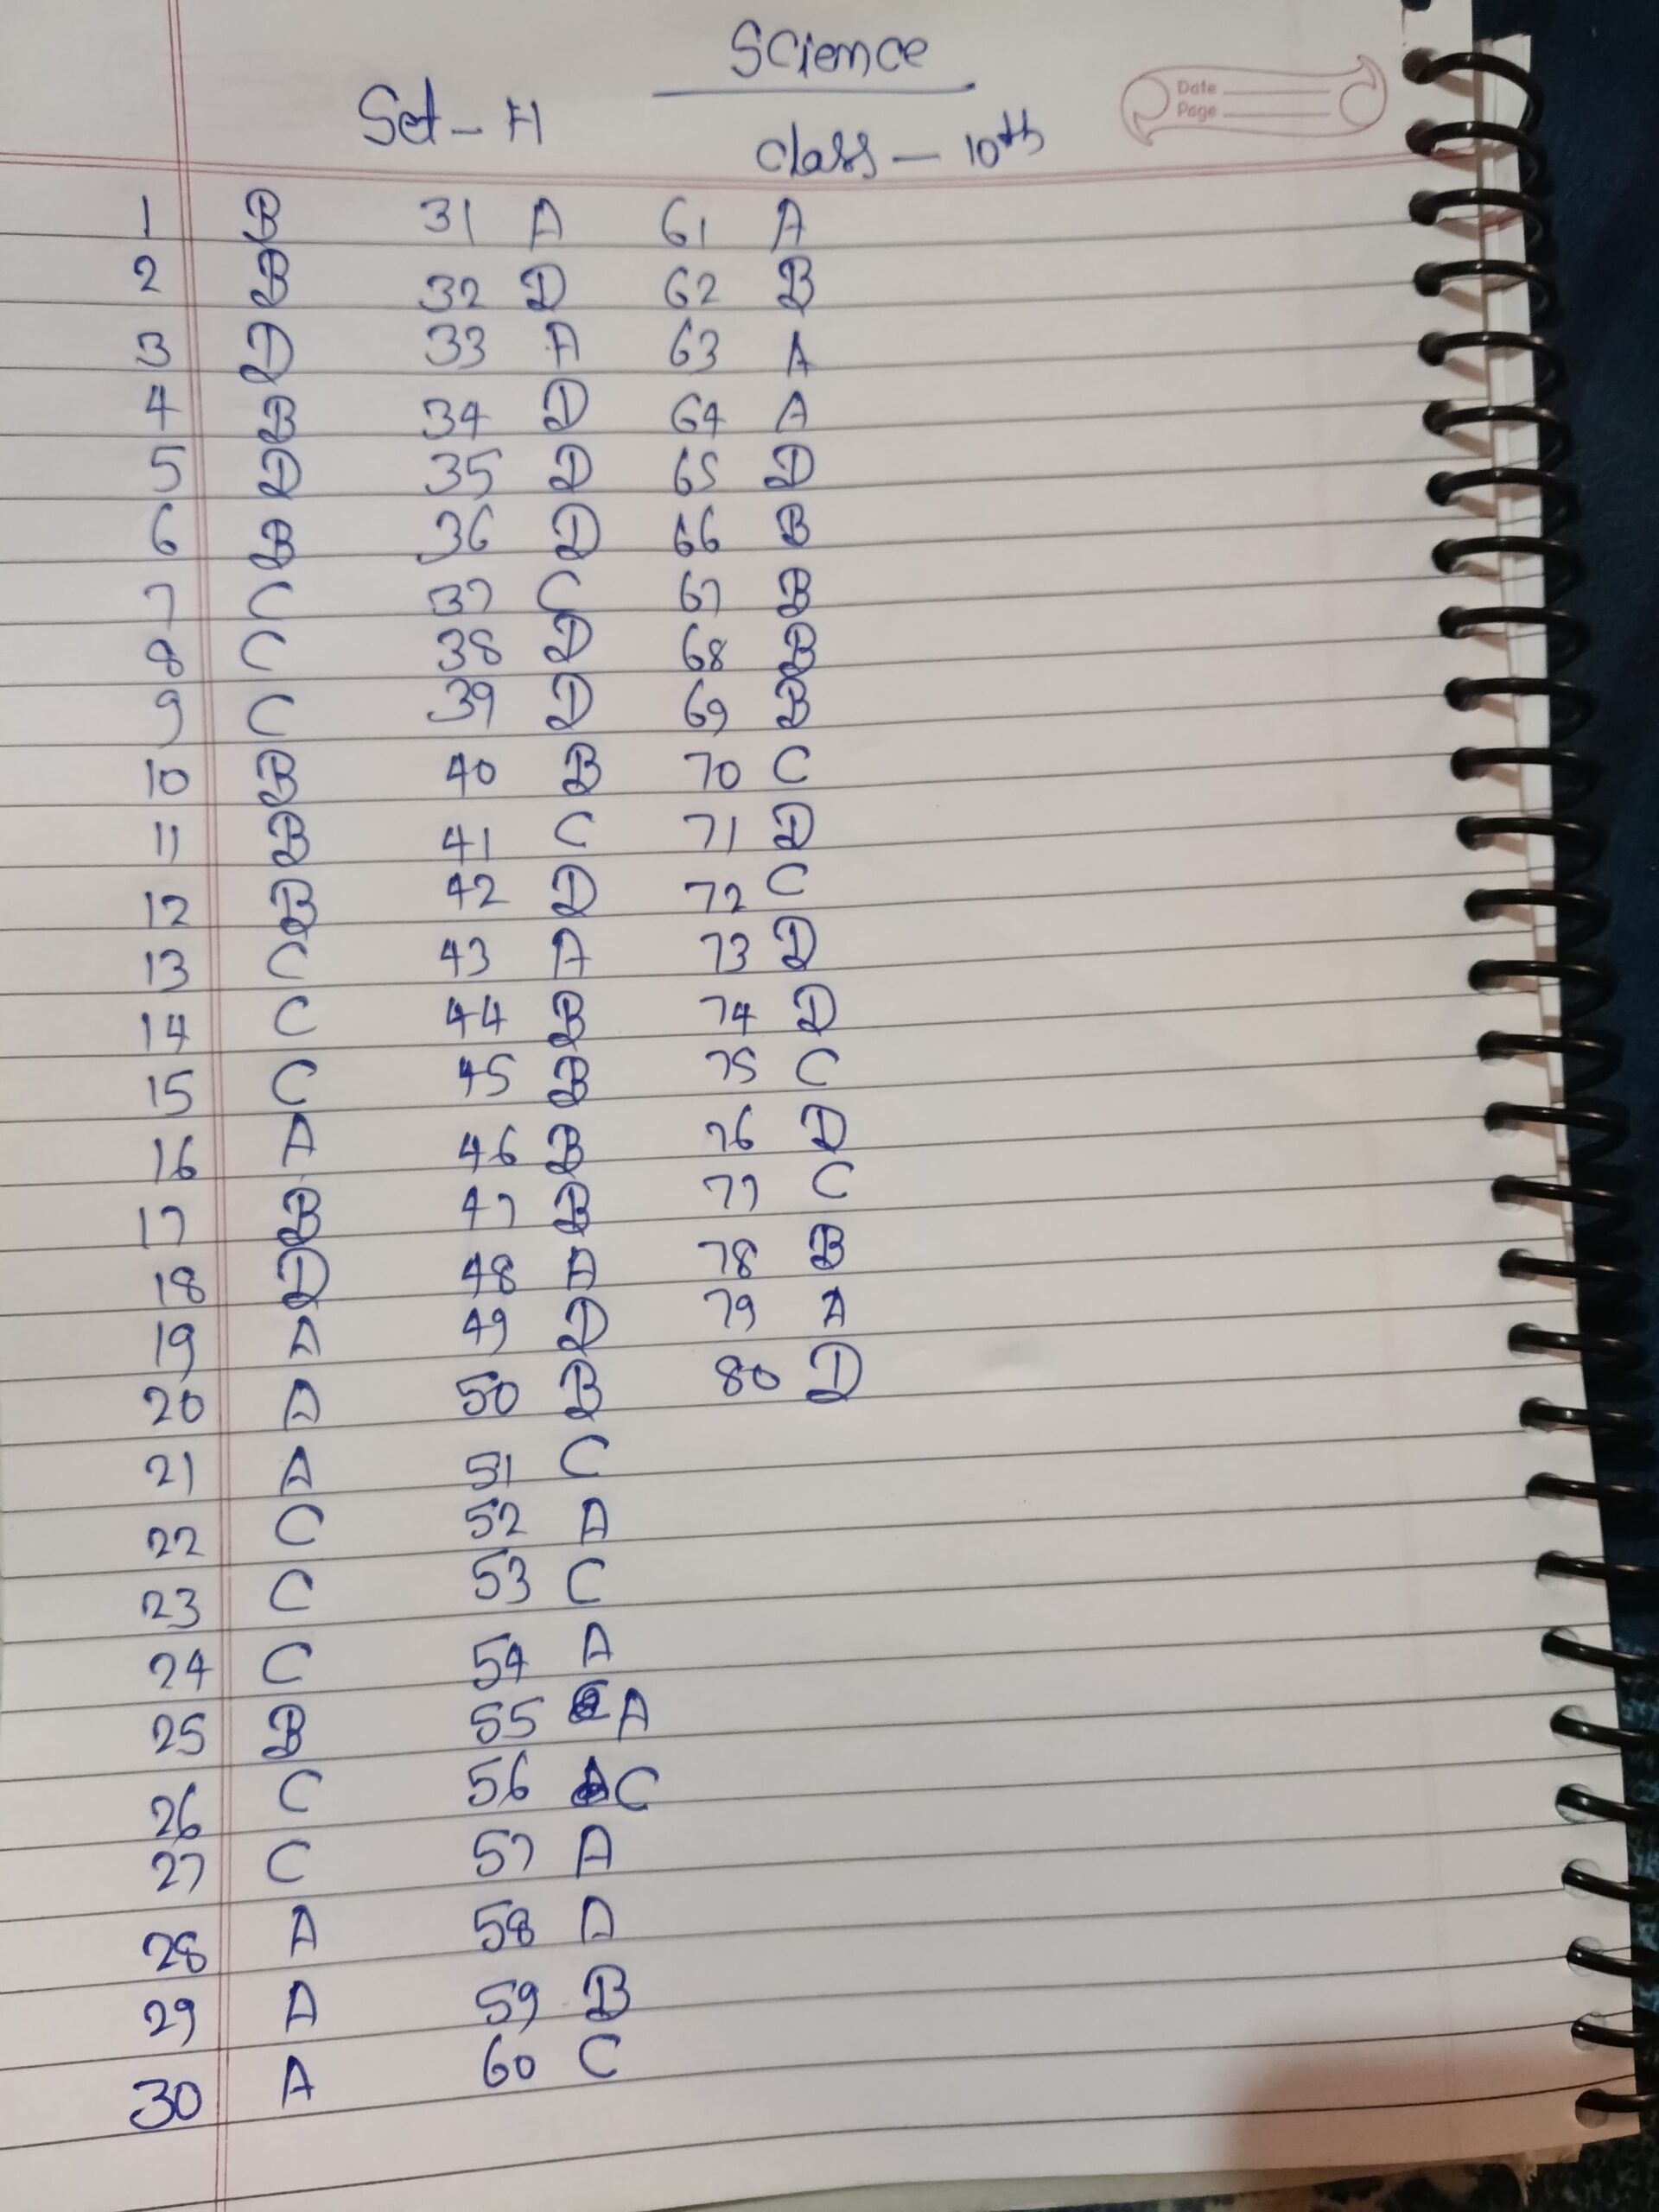 Science
Set - H
Class - 10th
Date
Page
1 B 31 A 61 A
2 B 32 D 62 B
3 D 33 A 63 A
4 B 34 D 64 A
5 D 35 D 65 D
6 B 36 D 66 B
7 C 37 C 67 B
8 C 38 D 68 B
9 C 39 D 69 B
10 B 40 B 70 C
11 B 41 C 71 D
12 B 42 D 72 C
13 C 43 A 73 D
14 C 44 B 74 D
15 C 45 B 75 C
16 A 46 B 76 D
17 B 47 B 77 C
18 D 48 A 78 B
19 A 49 D 79 A
20 A 50 B 80 D
21 A 51 C
22 C 52 A
23 C 53 C
24 C 54 A
25 B 55 A
26 C 56 C
27 C 57 A
28 A 58 A
29 A 59 B
30 A 60 C